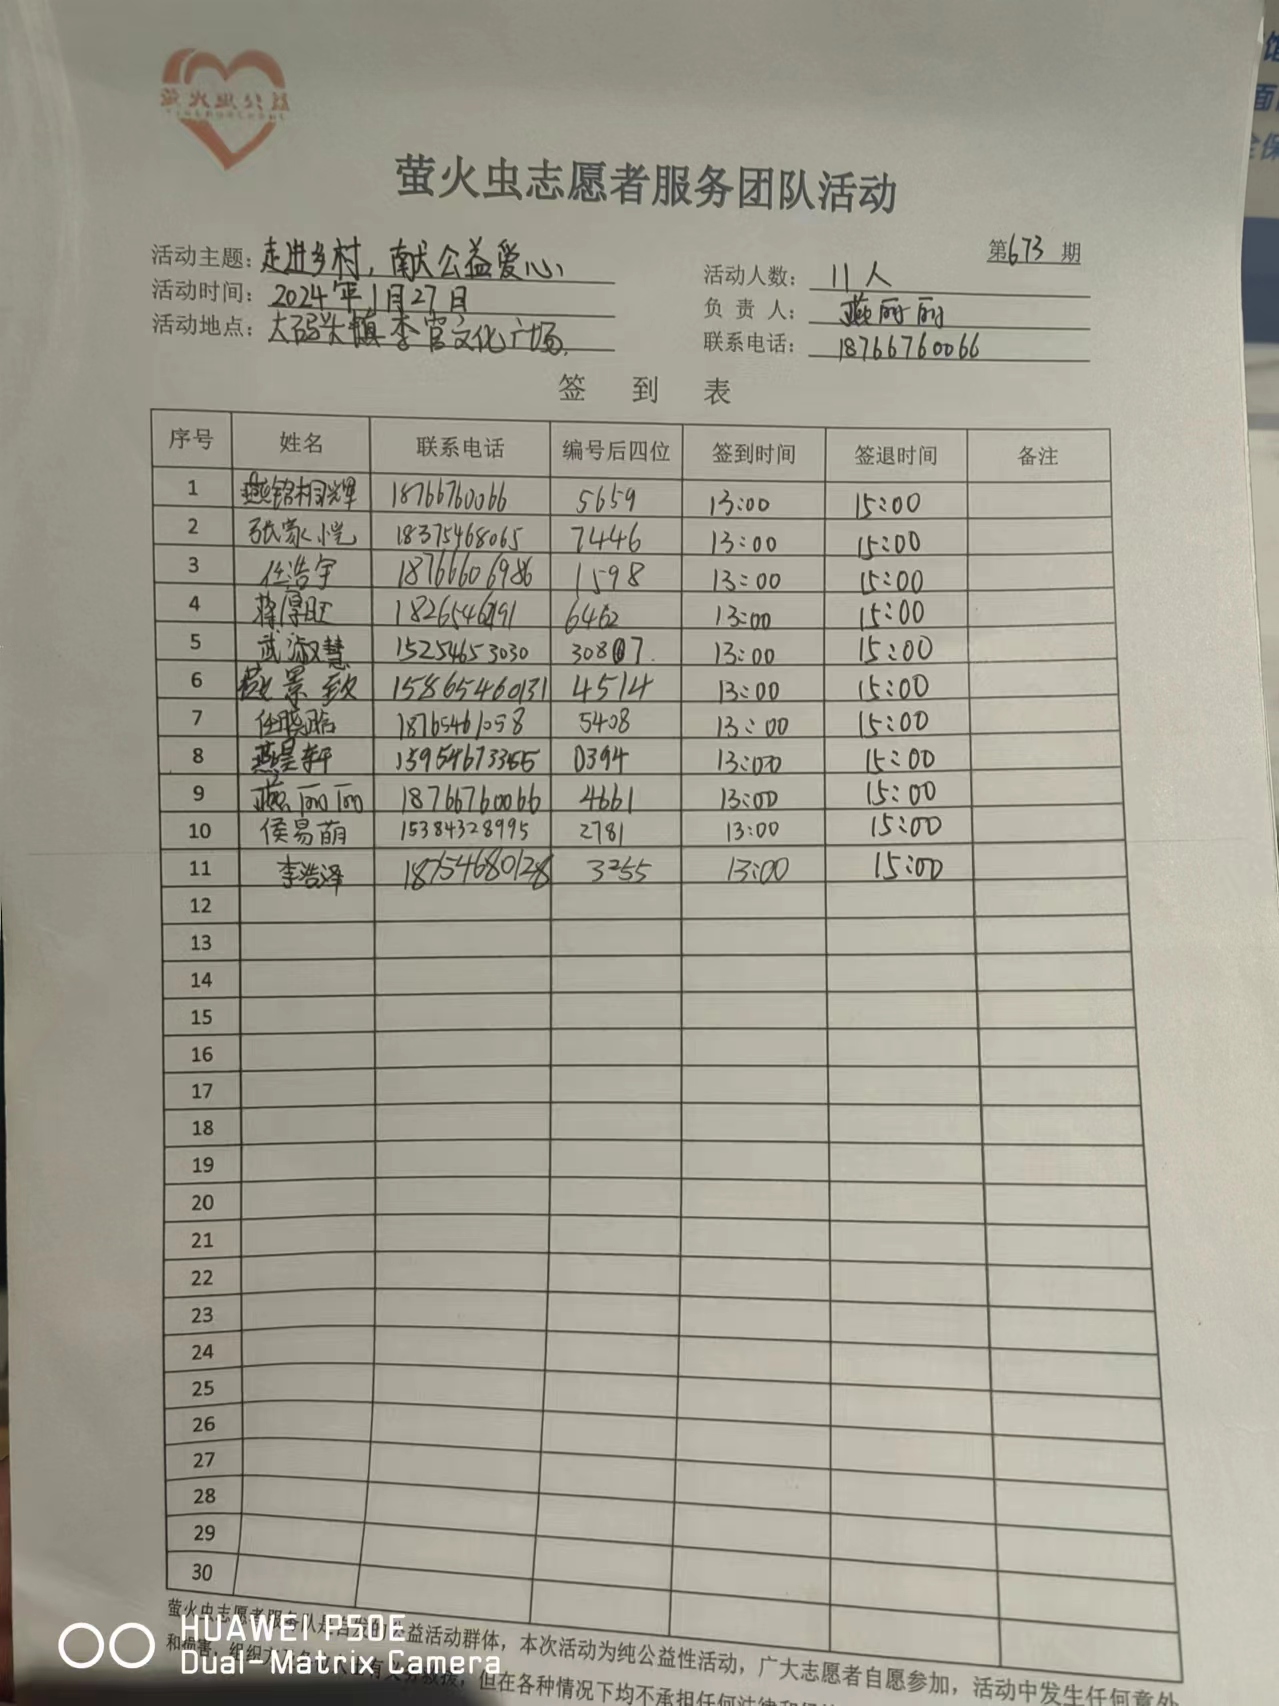 萤火虫公益
萤火虫志愿者服务团队活动
第673期
活动主题：走进乡村，献公益爱心
活动人数：11人
活动时间：2024年1月27日
负责人：燕丽丽
活动地点：大码头镇李官文化广场.
联系电话：18766760066
签到表
序号 姓名 联系电话 编号后四位 签到时间 签退时间 备注
1 燕铭相辉 18766760066 5659 13:00 15:00
2 张家恺 18375468065 7446 13:00 15:00
3 任浩宇 18766606986 1598 13:00 15:00
4 蒋厚旺 6462 13:00 15:00
5 武淑慧 15254653030 13:00 15:00
6 燕景致 15865460131 4514 13:00 15:00
7 18765461058 5408 13:00 15:00
8 燕昊轩 15954673355 0394 13:00 15:00
9 燕丽丽 18766760066 4661 13:00 15:00
10 侯易萌 15384328995 2781 13:00 15:00
11 李浩泽 18754680128 3255 13:00 15:00
12
13
14
15
16
17
18
19
20
21
22
23
24
25
26
27
28
29
30
萤火虫志愿者服务队是自发的公益活动群体，本次活动为纯公益性活动，广大志愿者自愿参加，活动中发生任何意外
和损害，组织，但在各种情况下均不承担任何法律和
HUAWEI P50E
Dual-Matrix Camera
馆
面
全保